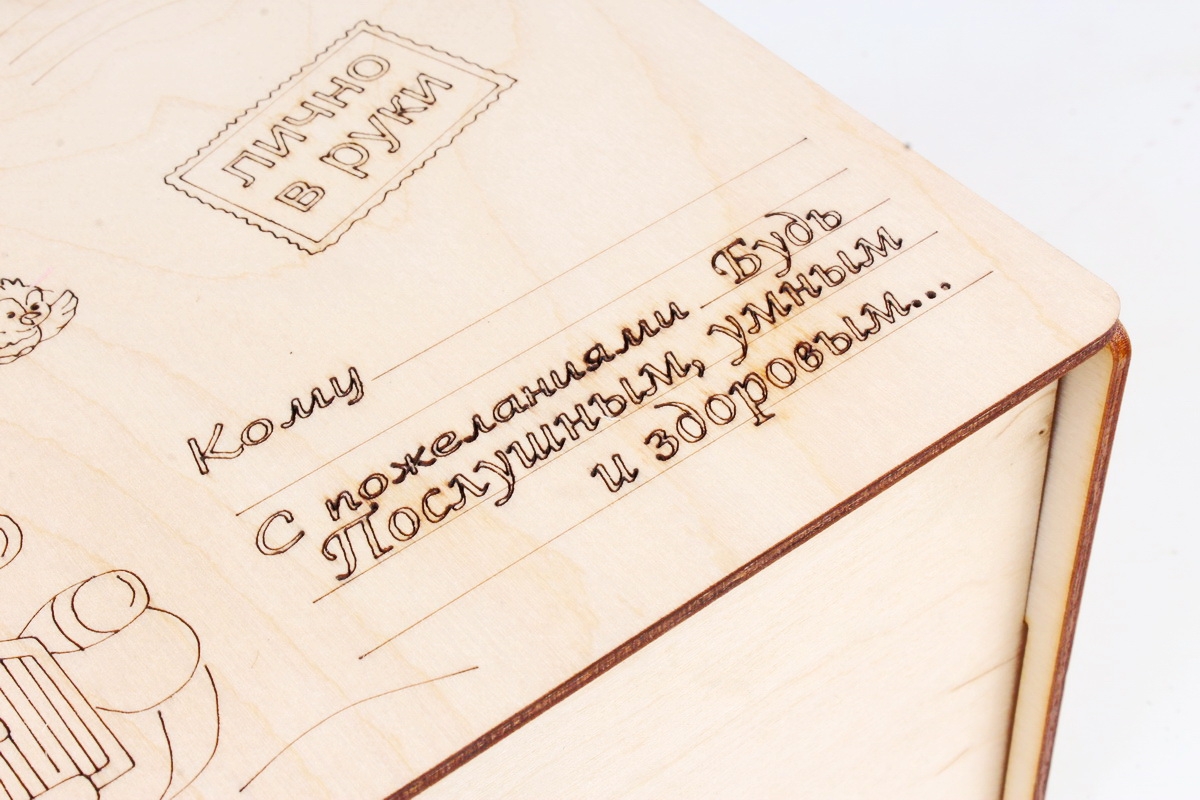 ЛИЧНО
В РУКИ
Кому
С пожеланиями Будь
Послушным, умным
и здоровым...